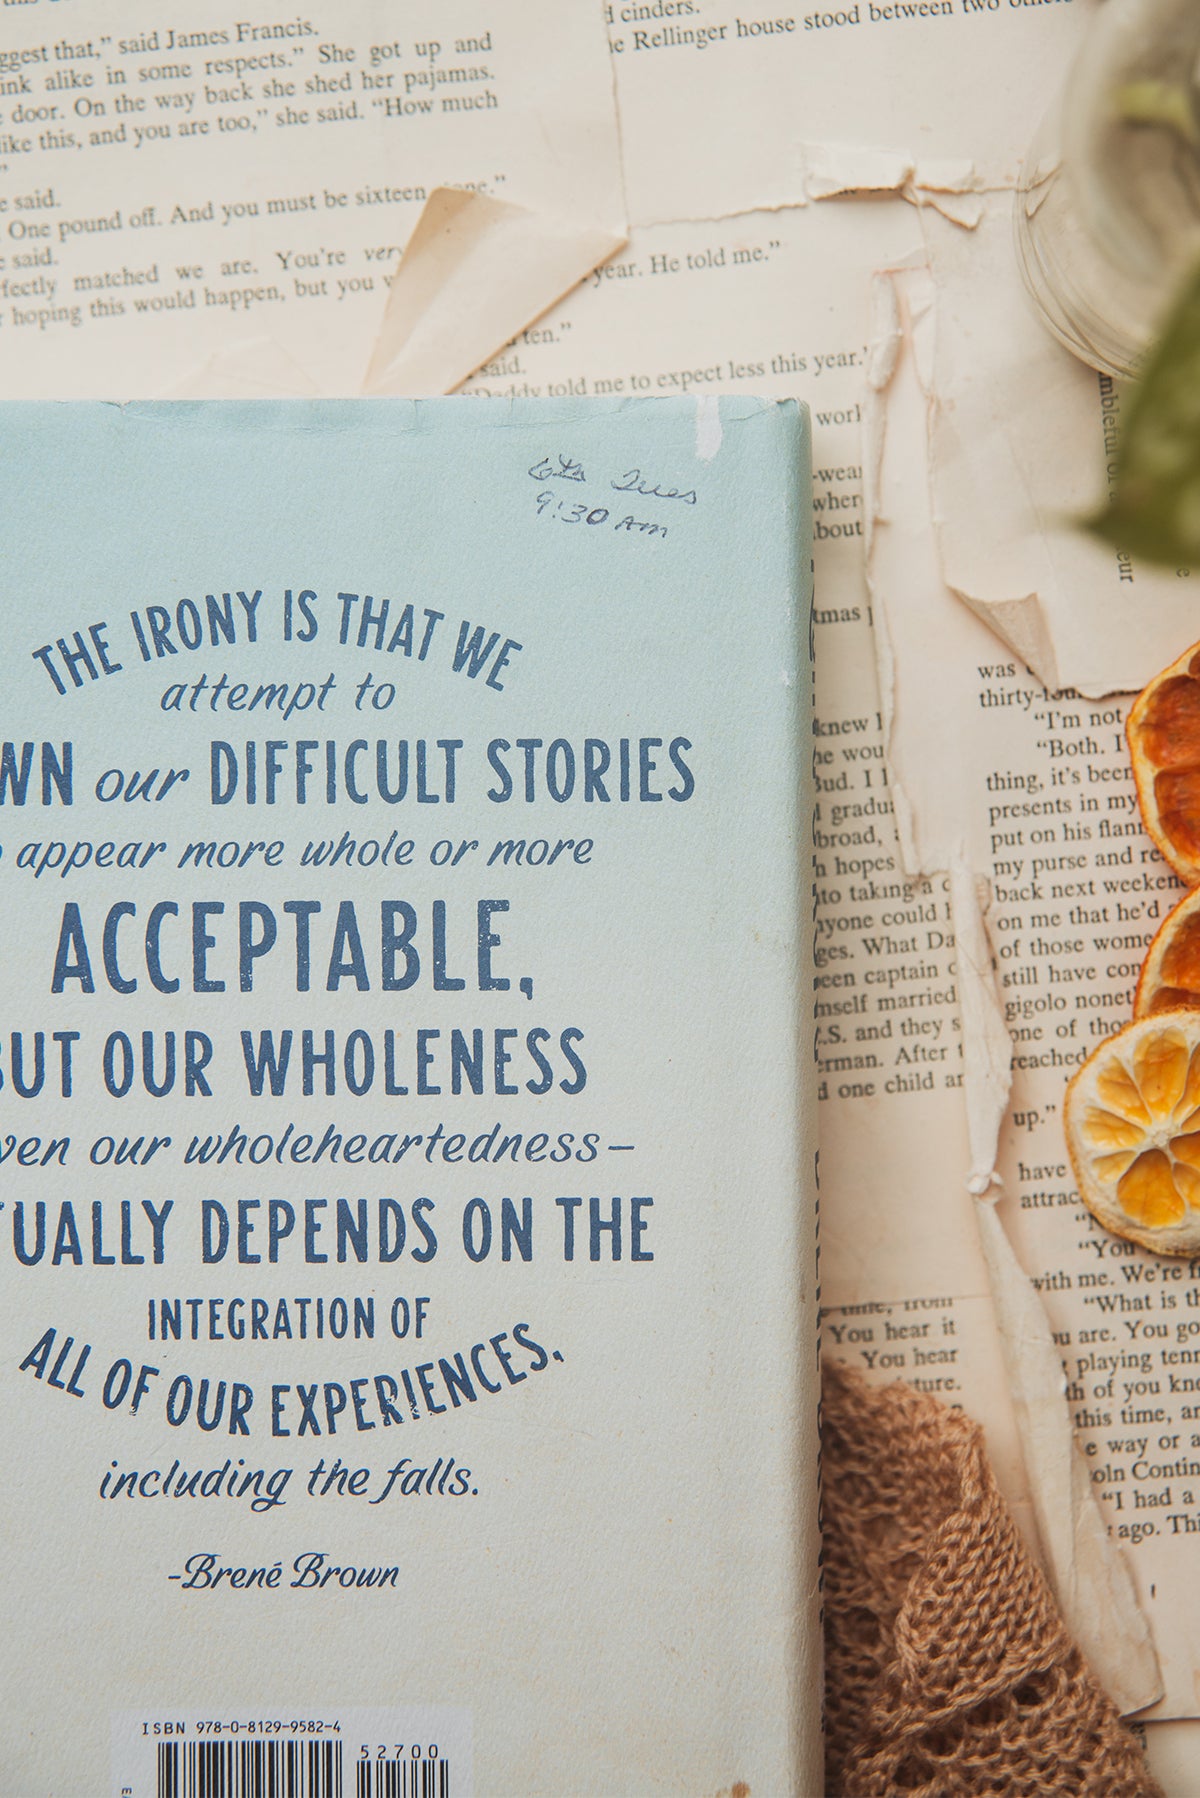 ggest that,” said James Francis.
ink alike in some respects.” She got up and
door. On the way back she shed her pajamas.
like this, and you are too,” she said. “How much
e said.
One pound off. And you must be sixteen
e said.
fectly matched we are. You're very
hoping this would happen, but you
cinders.
e Rellinger house stood between two others
year. He told me.”
ten.”
said.
“Daddy told me to expect less this year.”
6th Tues
9:30 AM
THE IRONY IS THAT WE
attempt to
WN our DIFFICULT STORIES
appear more whole or more
ACCEPTABLE,
BUT OUR WHOLENESS
ven our wholeheartedness–
TUALLY DEPENDS ON THE
INTEGRATION OF
ALL OF OUR EXPERIENCES,
including the falls.
-Brené Brown
ISBN 978-0-8129-9582-4
52700
worl
-wea
wher
bout
tmas
knew
he wou
Bud. I
gradu
broad,
n hopes
to taking a
yone could
ges. What Da
een captain
mself married
.S. and they s
erman. After
d one child an
You hear it
You hear
ture.
was
thirty-four
“I'm not
“Both. I
thing, it's been
presents in my
put on his flann
my purse and re
back next weeken
on me that he'd
of those wome
still have con
gigolo nonet
one of tho
reached
up.”
have
attrac
“You
with me. We're f
“What is th
ou are. You go
playing tenn
th of you kno
this time, an
e way or a
oln Contin
“I had a
ago. Thi